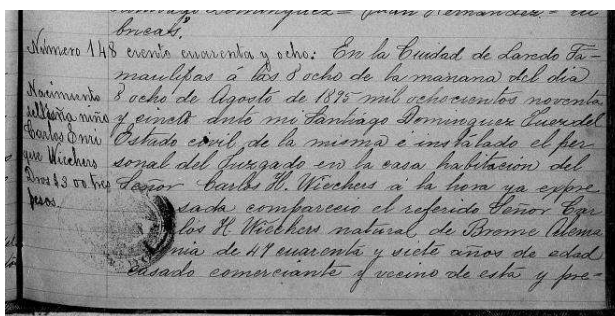 Domingo Dominguez = Juan Hernandez = Ru
bricas".
Número 148 ciento cuarenta y ocho: En la Ciudad de Laredo Ta-
maulipas á las 8 ocho de la mañana del dia
8 ocho de Agosto de 1895 mil ochocientos noventa
y cinco ante mi Santiago Dominguez Juez del
Estado civil de la misma é instalado el per
sonal del Juzgado en la casa habitación del
Señor Carlos H. Wiechers a la hora ya expre
sada compareció el referido Señor Car
los H Wiechers natural de Breme Alema
nia de 47 cuarenta y siete años de edad
casado comerciante y vecino de esta y pre=
Nacimiento
del niño
Carlos Enri
que Wiechers
Dros $3.00 tres
pesos.